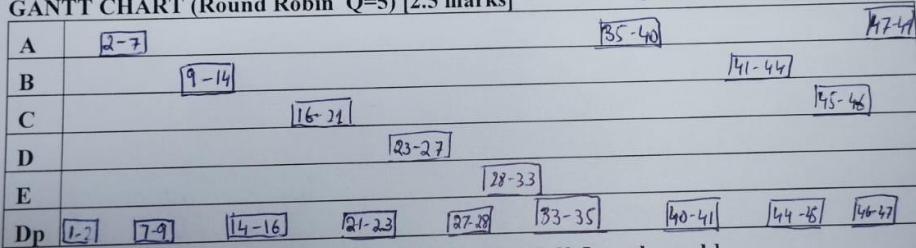 GANTT CHART (Round Robin Q=5) [2.5 marks]
A 2-7 35-40
B 9-14 41-44
C 16-21 45-46
D 23-27
E 28-33
Dp 1-2 7-9 14-16 21-23 27-28 33-35 40-41 44-45 46-47